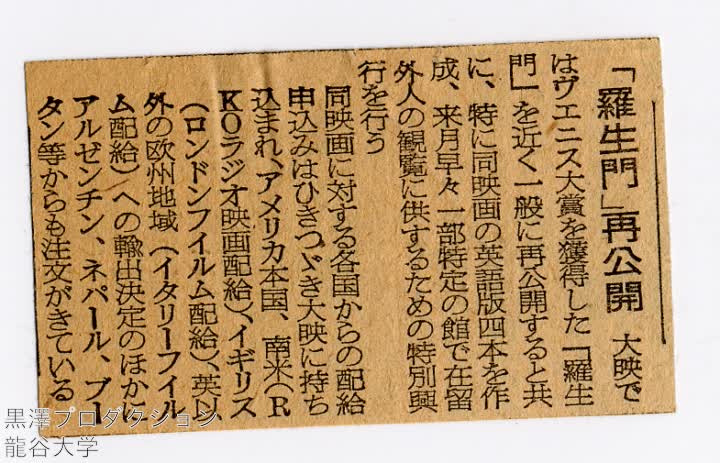 「羅生門」再公開 大映で
はヴエニス大賞を獲得した「羅生
門」を近く一般に再公開すると共
に、特に同映画の英語版四本を作
成、来月早々一部特定の館で在留
外人の観覧に供するための特別興
行を行う
同映画に対する各国からの配給
申込みはひきつゞき大映に持ち
込まれ、アメリカ本国、南米(R
KOラジオ映画配給)、イギリス
(ロンドンフイルム配給)、英以
外の欧州地域(イタリーフイル
ム配給)への輸出決定のほかに
アルゼンチン、ネパール、ブー
タン等からも注文がきている
黒澤プロダクション
龍谷大学